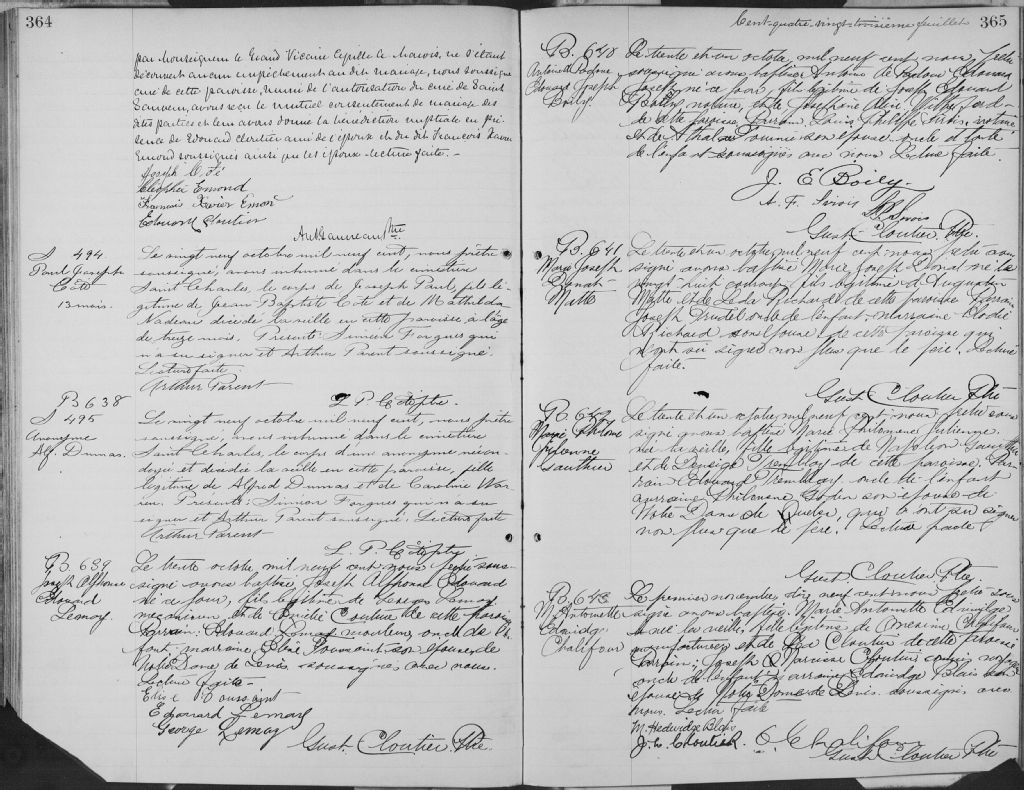 364
par Monseigneur le Grand Vicaire Cyrille A. Marois, ne s'étant
découvert aucun empêchement au dit mariage, nous soussigné
curé de cette paroisse, muni de l'autorisation du curé de Saint
Sauveur, avons reçu le mutuel consentement de mariage des
dites parties et leur avons donné la bénédiction nuptiale en pré-
sence de Edouard Cloutier ami de l'époux et du dit François Xavier
Emond soussignés ainsi que les époux. Lecture faite.-
Joseph
Cléophée Emond
François Xavier Emond
Edouard Cloutier
Ptre
S 494
Paul Joseph
Côté
13 mois.
Le vingt neuf octobre mil neuf cent, nous prêtre
soussigné, avons inhumé dans le cimetière
Saint Charles, le corps de Joseph Paul, fils lé-
gitime de Jean-Baptiste Côté et de Mathilda
Nadeau décédé la veille en cette paroisse, à l'âge
de treize mois. Présents: Siméon Forgues qui
n'a su signer et Arthur Parent soussigné.
Lecture faite.
Arthur Parent
B 638
S 495
Anonyme
Alf. Dumas.
Le vingt neuf octobre mil neuf cent, nous prêtre
soussigné, avons inhumé dans le cimetière
Saint Charles, le corps d'un anonyme
et décédée la veille en cette paroisse, fille
légitime de Alfred Dumas et de Caroline War-
ren. Présents: Siméon Forgues qui n'a su
signer et Arthur Parent soussigné. Lecture faite
Arthur Parent
B. 639
Joseph Alphonse
Edouard
Lemay.
Le trente octobre mil neuf cent nous prêtre sous-
signé avons baptisé Joseph Alphonse Edouard
né ce jour, fils légitime de Georges Lemay
mécanicien, et de Emélie Couture de cette paroisse
Parrain: Edouard Lemay mouleur, oncle de l'en
fant; marraine, Elise Toussaint son épouse, de
Notre Dame de Lévis, soussignés avec nous.
Lecture faite-
Elise Toussaint
Edouard Lemay
George Lemay
Gust. Cloutier Ptre.
Cent-quatre-vingt-troisième feuillet
365
B. 640
Antoine
Edouard Joseph
Boily.
Le trente et un octobre mil neuf cent nous, prêtre
soussigné avons baptisé Antoine
Joseph, né ce jour, fils légitime de Joseph Edouard
Boily, notaire, et de Joséphine Alice
de cette paroisse. Parrain Louis Philippe Sirois, notaire
et de son épouse oncle et tante
de l'enfant soussignés avec nous. Lecture faite.
J. E. Boily.
Sirois
Gust. Cloutier Ptre.
B. 641
Marie Joseph
Donat
Matte
Le trente et un octobre mil neuf cent nous prêtre sous
signé avons baptisé Marie Joseph Donat né le
vingt huit courant, fils légitime d'
Matte et de Léda Richard de cette paroisse. Parrain
Joseph Trudel oncle de l'enfant, marraine Elodie
Richard son épouse de cette paroisse qui
n'ont su signer non plus que le père. Lecture
faite.
Gust. Cloutier Ptre
B. 642
Marie Philomène
Julienne
Gauthier
Le trente et un octobre mil neuf cent nous prêtre sous
signé avons baptisé Marie Philomène Julienne,
née la veille, fille légitime de Napoléon Gauthier
et de Tremblay de cette paroisse. Par-
rain Edouard Tremblay oncle de l'enfant
marraine Philomène son épouse de
Notre Dame de Québec, qui n'ont su signer
non plus que le père. Lecture faite
Gust. Cloutier Ptre.
B. 643
M. Antoinette
Edwidge
Chalifour
Le premier novembre, dix neuf cent nous prêtre sous
signé avons baptisé Marie Antoinette Edwidge
née la veille, fille légitime de Onésime Chalifour
manufacturier, et de Cloutier de cette paroisse
Parrain, Joseph Cloutier commis
oncle de l'enfant; marraine Edwidge Blais son
épouse, de Notre Dame de Lévis. soussignés avec
nous. Lecture faite
M. Hedwidge Blais
J. E. Cloutier. O. Chalifour
Gust. Cloutier Ptre